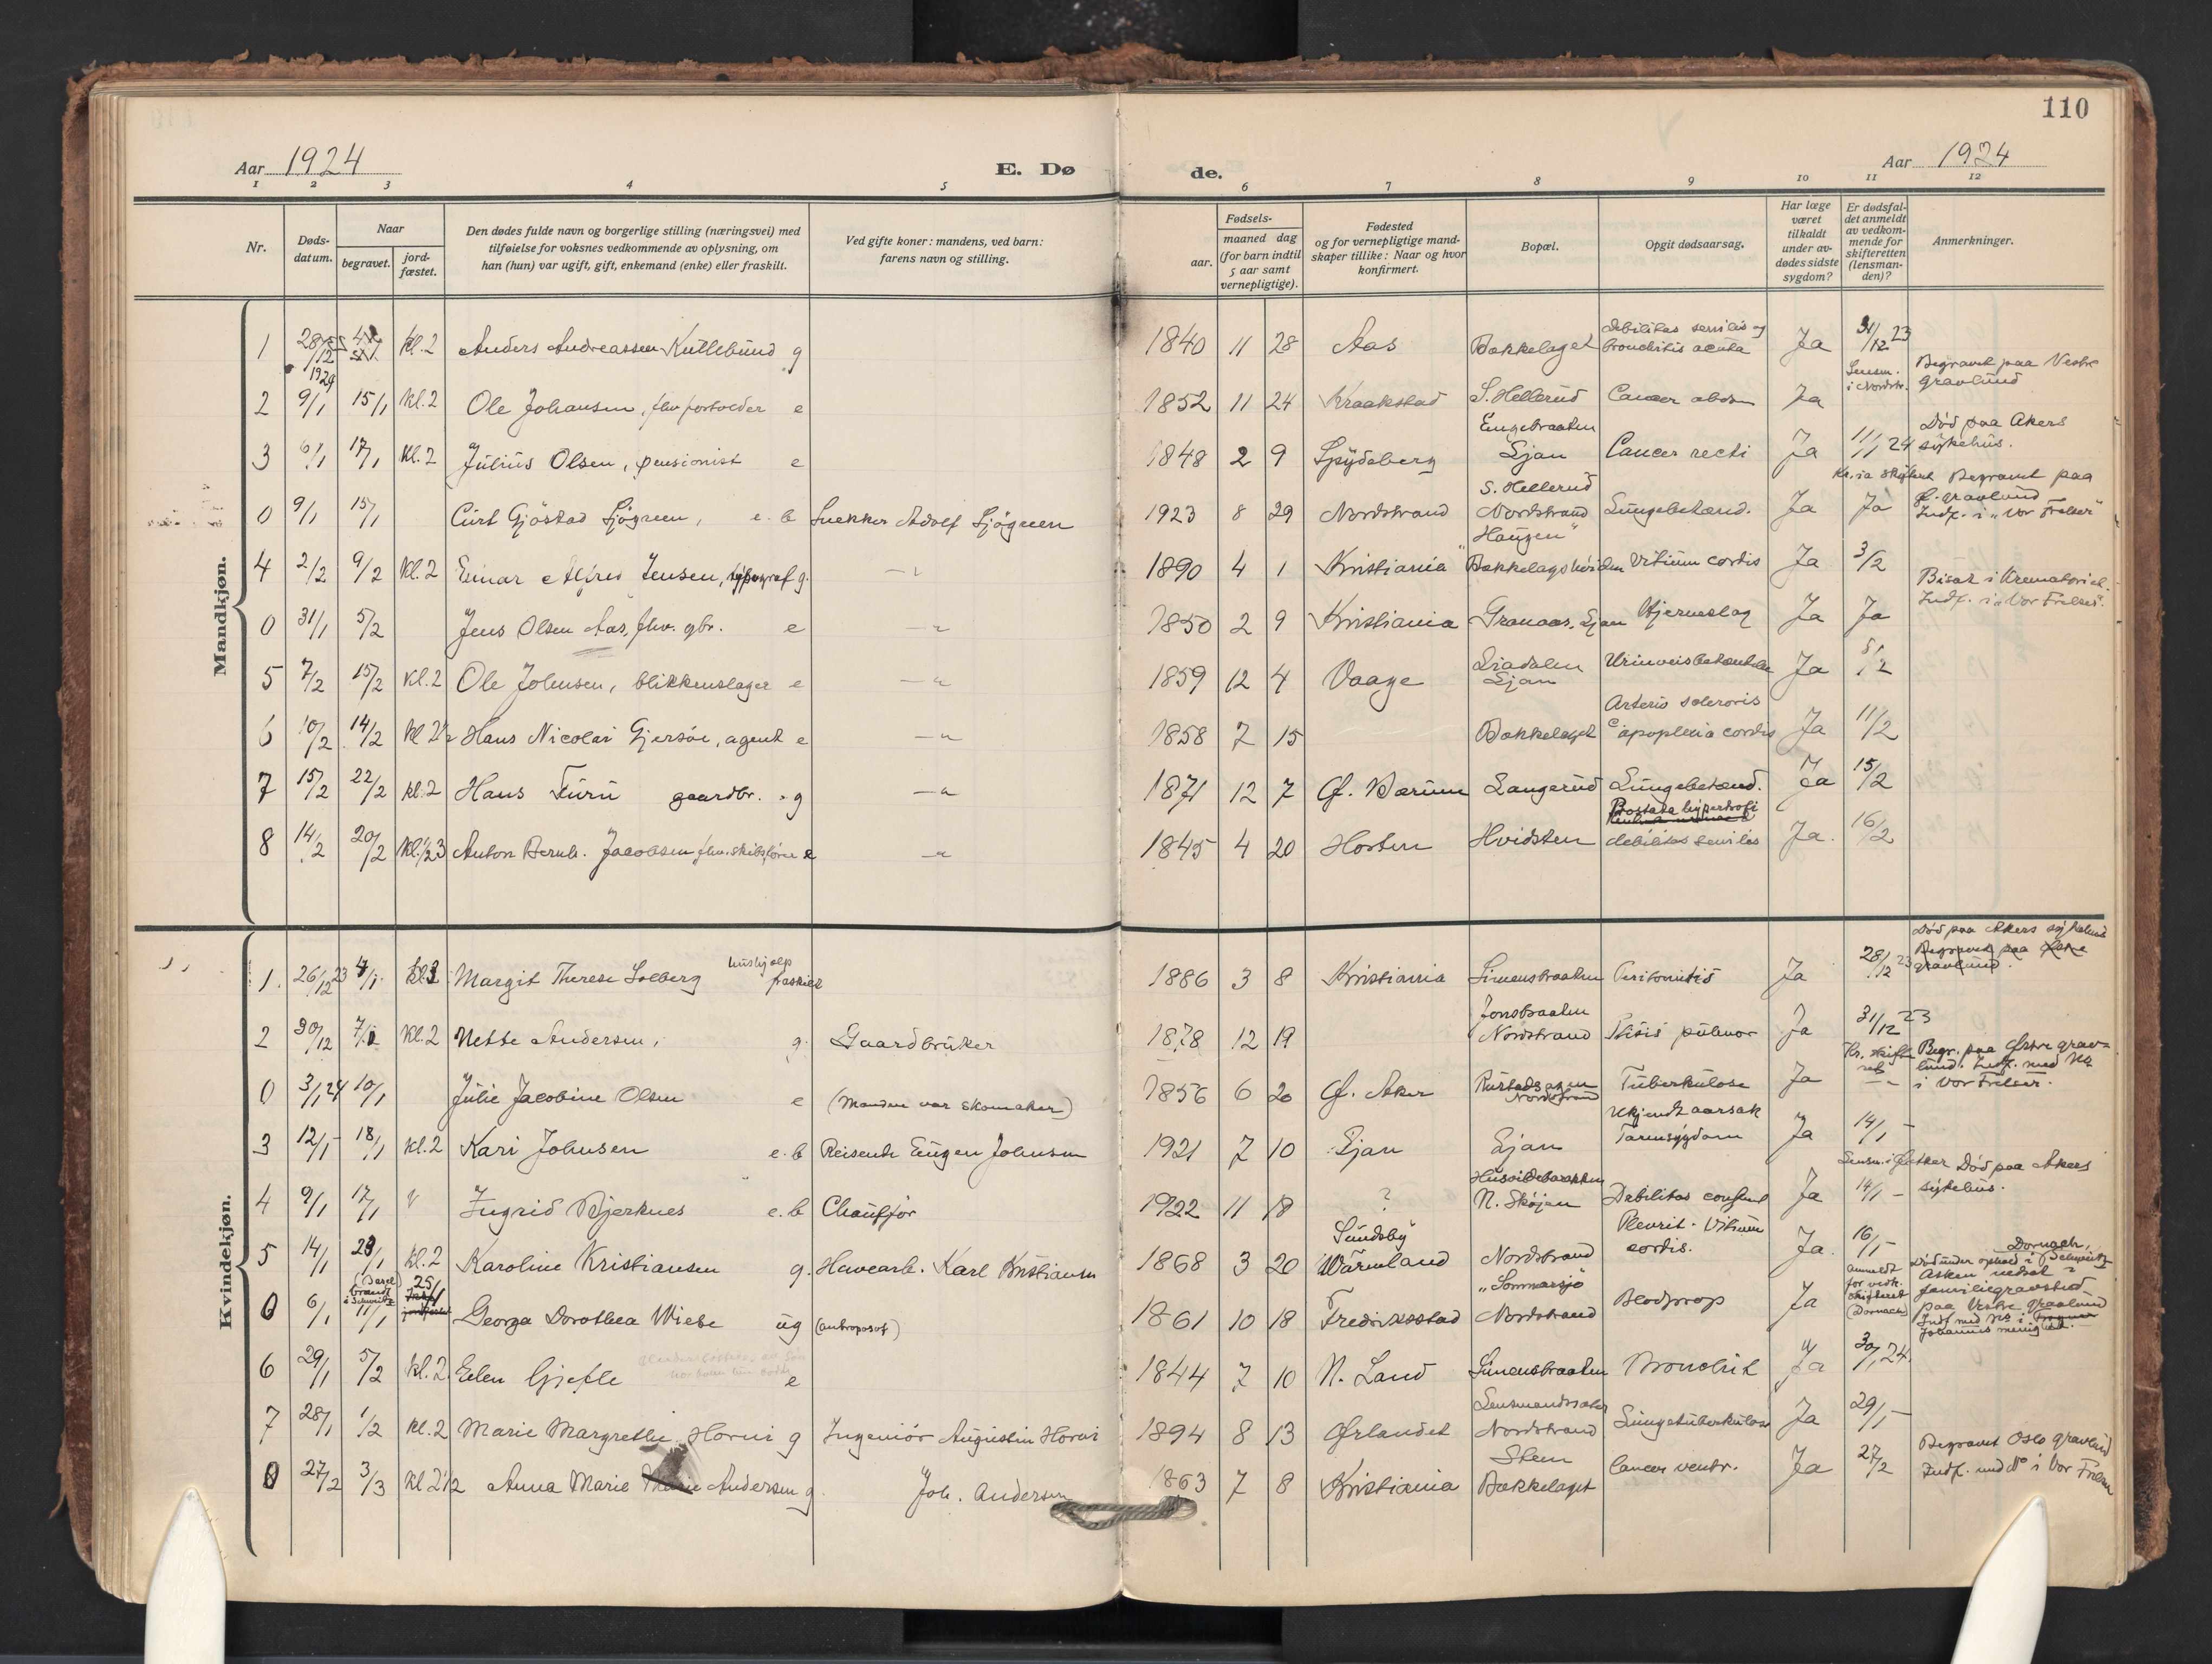 110
Aar 1924
E. Dø
de.
Aar 1924
1 2 3 4 5 6 7 8 9 10 11 12
Nr.
Døds-
datum.
Naar
begravet.
jord-
fæstet.
Den dødes fulde navn og borgerlige stilling (næringsvei) med
tilføielse for voksnes vedkommende av oplysning, om
han (hun) var ugift, gift, enkemand (enke) eller fraskilt.
Ved gifte koner: mandens, ved barn:
farens navn og stilling.
Fødsels-
aar.
maaned dag
(for barn indtil
5 aar samt
vernepligtige).
Fødested
og for vernepligtige mand-
skaper tillike: Naar og hvor
konfirmert.
Bopæl.
Opgit dødsaarsag.
Har læge
været
tilkaldt
under av-
dødes sidste
sygdom?
Er dødsfal-
det anmeldt
av vedkom-
mende for
skifteretten
(lensman-
den)?
Anmerkninger.
Mandkjøn.
1 28/12 kl. 2 Anders Andreassen Kutlebund g 1840 11 28 Aas Bækkelaget Debilitas senilis og bronchitis acuta Ja 31/12 23
1924
2 9/1 15/1 kl. 2 Ole Johansen, fhv forvolder e 1852 11 24 Kraakstad S. Hellerud Cancer abdom Ja Lensm. i Nordstr. Begravet paa Vestre gravlund
3 6/1 17/1 kl. 2 Julius Olsen, pensionist e 1848 2 9 Spydeberg Engebraaten Ljan Cancer recti Ja 11/1 24 Død paa Akers sykehus.
0 9/1 15/1 Curt Gjöstad Sjögreen, e. b Snekker Adolf Sjögreen 1923 8 29 Nordstrand S. Hellerud Nordstrand Lungebetænd. Ja Ja Begravet paa Ø. gravlund Indf. i "Vor Frelser"
4 2/2 9/2 kl. 2 Einar Alfred Jensen, typograf g. 1890 4 1 Kristiania "Haugen" Bækkelagshøiden Vitium cordis Ja 3/2
0 31/1 5/2 Jens Olsen Aas, fhv. gbr. e 1850 2 9 Kristiania Granaas, Ljan Hjerneslag Ja Ja Bisat i Krematoriet. Indf. i "Vor Frelser".
5 7/2 15/2 kl. 2 Ole Johnsen, blikkenslager e 1859 12 4 Vaage Liadalen Ljan Urinveisbetændelse Ja 8/2
6 10/2 14/2 kl 2½ Hans Nicolai Gjersøe, agent e 1858 7 15 Bækkelaget Arterio sclerosis apoplexia cordis Ja 11/2
7 15/2 22/2 kl. 2 Hans Furu gaardbr. g 1871 12 7 Ø. Bærum Langerud Lungebetænd. Ja 15/2
8 14/2 20/2 kl. ½3 Anton Bernh. Jacobsen fhv. skibsfører e 1845 4 20 Horten Hvidsten Prostata hypertrofi debilitas senilis Ja. 16/2
Kvindekjøn.
1. 26/12 23 4/1 kl. Margit Therese Solberg hushjælp fraskilt 1886 3 8 Kristiania Simensbraaten Peritonitis Ja 28/12 23 Død paa Akers sykehus Begravet paa gravlund.
2 30/12 7/1 kl. 2 Nette Andersen, g. Gaardbruker 1878 12 19 Jonsbraaten Nordstrand Ptisis pulmor Ja 31/12 23
0 3/1 24 10/1 Julie Jacobine Olsen e (Manden var skomaker) 1856 6 20 Ø. Aker Nordstrand Tuberkulose Ja Kr. skifteret Begr. paa Østre gravlund. Indf. med No i Vor Frelser.
3 12/1 18/1 kl. 2 Kari Johnsen e. b Reisende Eugen Johnsen 1921 7 10 Ljan Ljan Ukjendt aarsak Tarmsygdom Ja 14/1
4 9/1 17/1 Ingrid Bjerknes e. b Chaufför 1922 11 18 ? Husvildebarakken N. Skøjen Debilitas Ja 14/1 Lensm. i Ø. Aker Død paa Akers sykehus.
5 14/1 kl. 2 Karoline Kristiansen g. Havearb. Karl Kristiansen 1868 3 20 Sundsby Wärmland Nordstrand Pleurit. Vitium cordis. Ja. 16/1
0 6/1 (Basel) brændt i Schweitz 11/1 25/1 Georga Dorothea Wiebe ug (antroposof) 1861 10 18 Fredriksstad "Sommersjø" Nordstrand Blodprop Ja anmeldt for vedk. skifteret (Dornach) Død under ophold i Dornach, Schweitz Asken nedsat i familiegravsted paa Vestre gravlund Indf med No i Johannes menig
6 29/1 5/2 kl. 2 Eelen Gjefle e 1844 7 10 N. Land Simensbraaten Bronchit Ja 30/1 24.
7 28/1 1/2 kl. 2 Marie Margrethe Horni g Ingeniör Augustin Horni 1894 8 13 Ørlandet Nordstrand Lungetuberkulose Ja 29/1
0 27/2 3/3 kl 2½ Anna Marie Andersen g. Joh. Andersen 1863 7 8 Kristiania Bækkelaget Cancer ventr. Ja 27/2 Begravet Oslo gravlund Indf. med No i Vor Frelser